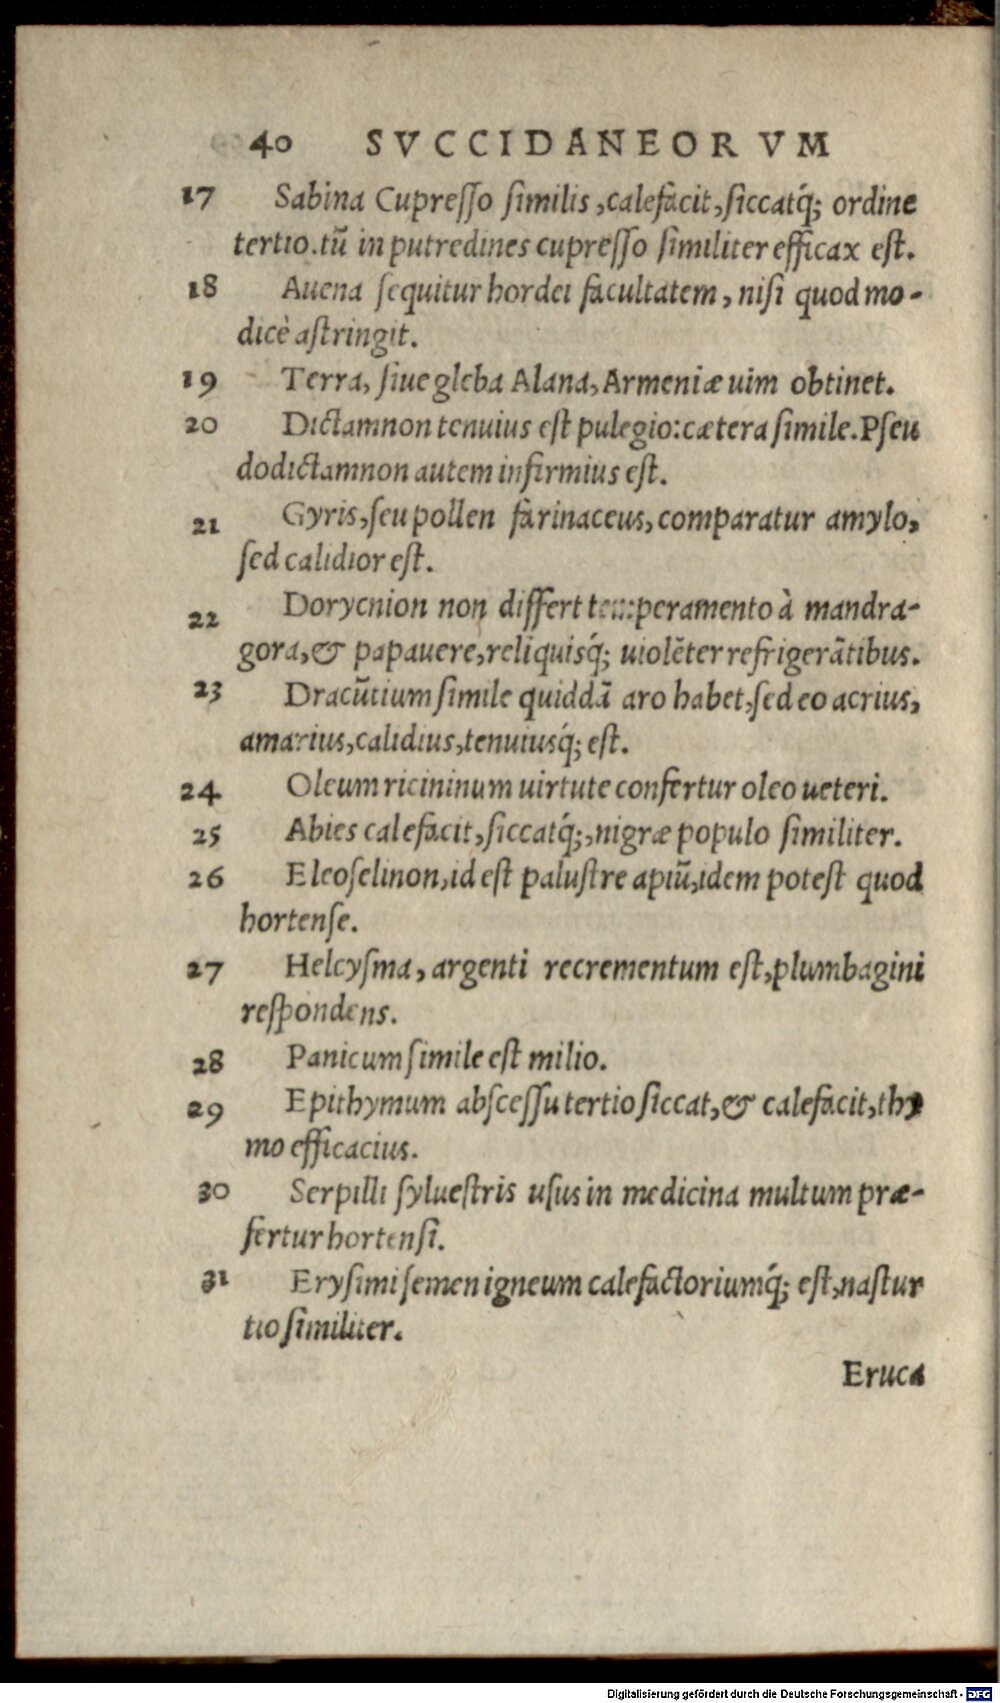 40 SVCCIDANEORVM
17 Sabina Cupreſſo ſimilis, calefacit, ſiccatq́; ordine
tertio. tū in putredines cupreſſo ſimiliter efficax eſt.
18 Auena ſequitur hordei facultatem, niſi quod mo-
dicè aſtringit.
19 Terra, ſiue gleba Alana, Armeniæ uim obtinet.
20 Dictamnon tenuius eſt pulegio: cætera ſimile. Pſeu
dodictamnon autem infirmius eſt.
21 Gyris, ſeu pollen farinaceus, comparatur amylo,
ſed calidior eſt.
22 Dorycnion non differt temperamento à mandra-
gora, & papauere, reliquisq́; uiolēter refrigerātibus.
23 Dracūtium ſimile quiddā aro habet, ſed eo acrius,
amarius, calidius, tenuiusq́; eſt.
24 Oleum ricininum uirtute confertur oleo ueteri.
25 Abies calefacit, ſiccatq́;, nigræ populo ſimiliter.
26 Eleoſelinon, id eſt paluſtre apiū, idem poteſt quod
hortenſe.
27 Helcyſma, argenti recrementum eſt, plumbagini
reſpondens.
28 Panicum ſimile eſt milio.
29 Epithymum abſceſſu tertio ſiccat, & calefacit, thy
mo efficacius.
30 Serpilli ſylueſtris uſus in medicina multum præ-
fertur hortenſi.
31 Eryſimi ſemen igneum calefactoriumq́; eſt, naſtur
tio ſimiliter.
Eruca
Digitalisierung gefördert durch die Deutsche Forschungsgemeinschaft - DFG